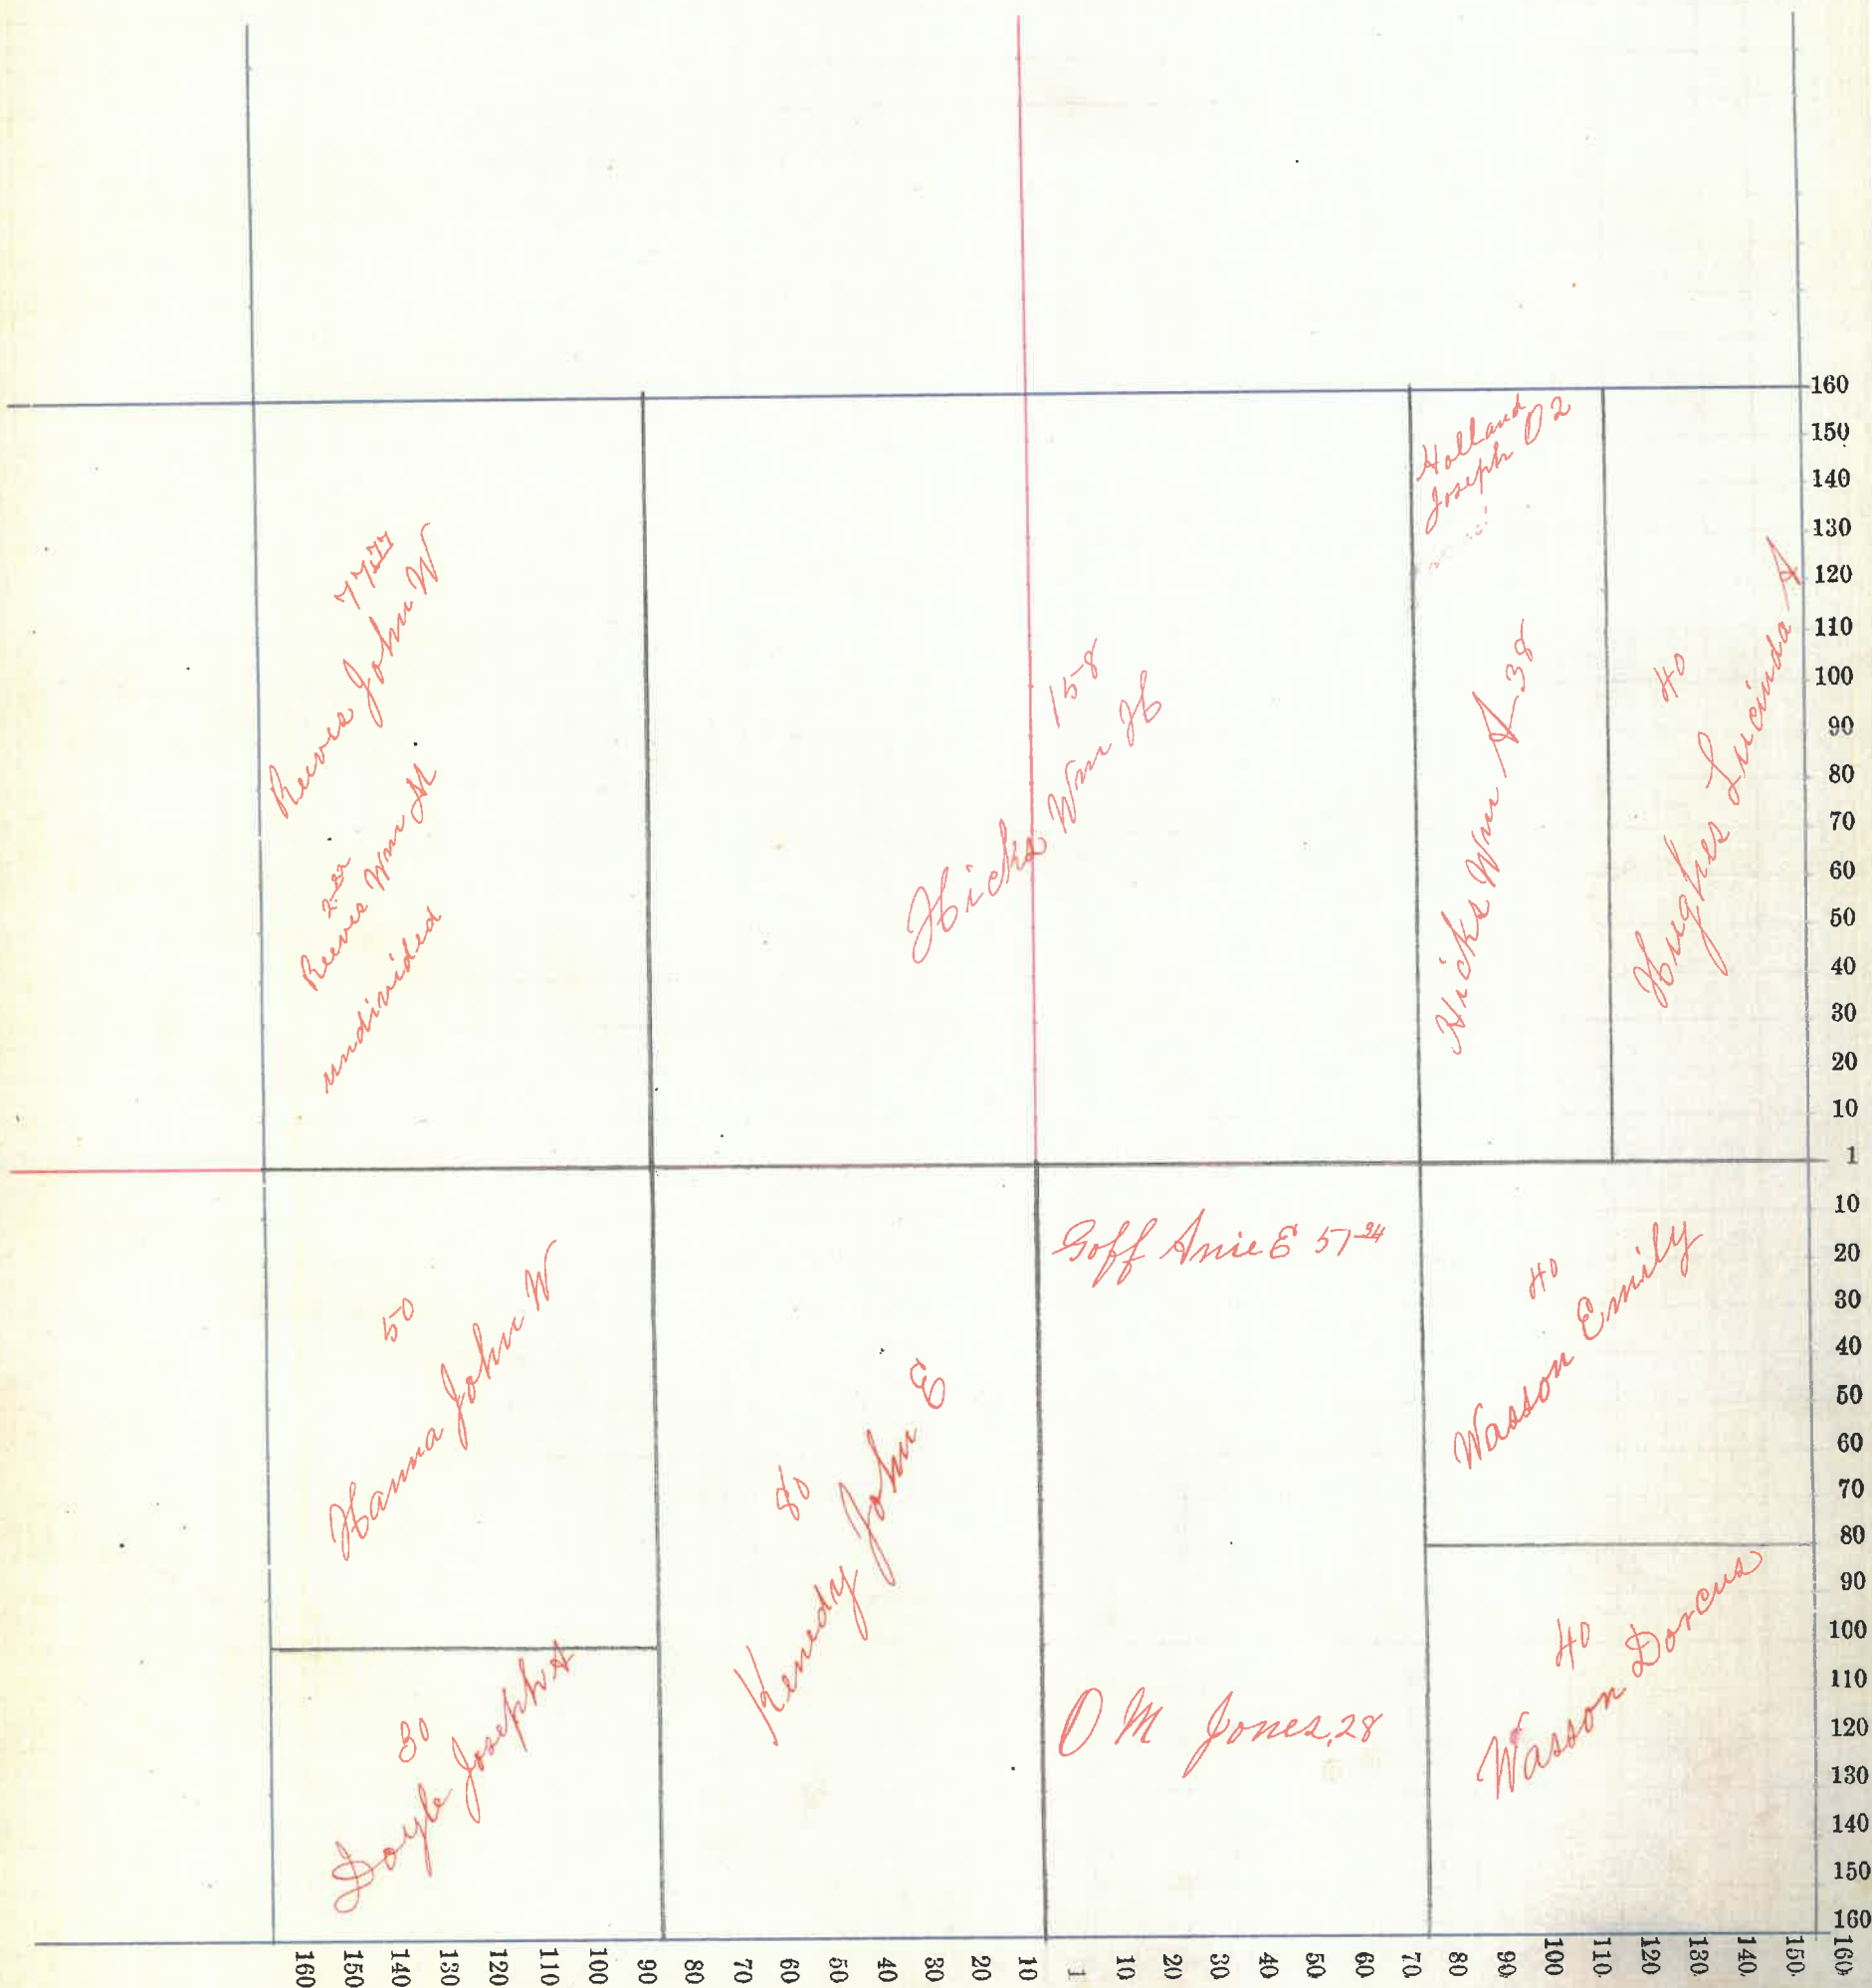 Holland
Joseph O 2
77 77
Reeves John W
2.22
Reeves Wm M
undivided
158
Hicks Wm H
Hicks Wm A 38
40
Hughes Lucinda A
50
Hanna John W
30
Doyle Joseph A
80
Kenedy John E
Goff Anie E 51-24
O M Jones, 28
40
Wasson Emily
40
Wasson Dorcus
160
150
140
130
120
110
100
90
80
70
60
50
40
30
20
10
1
10
20
30
40
50
60
70
80
90
100
110
120
130
140
150
160
160 150 140 130 120 110 100 90 80 70 60 50 40 30 20 10 1 10 20 30 40 50 60 70 80 90 100 110 120 130 140 150 160